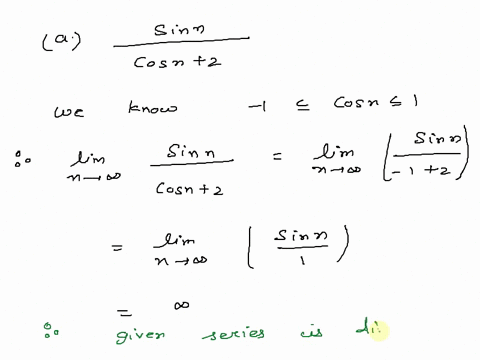 (a.) sinn / cosn+2
we know -1 ≤ cosn ≤ 1
∴ lim n→∞ sinn / cosn+2 = lim n→∞ ( sinn / -1+2 )
= lim n→∞ ( sinn / 1 )
= ∞
∴ given series is